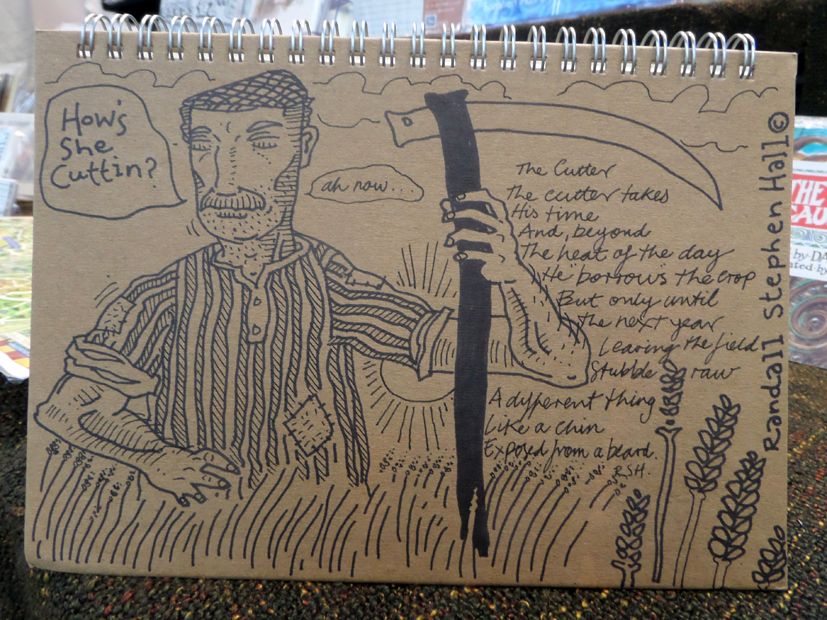 How's
She
Cuttin?
ah now...
The Cutter
The cutter takes
His time
And, beyond
The heat of the day
He borrows the crop
But only until
the next year
Leaving the field
Stubble raw
A different thing
Like a chin
Exposed from a beard.
RSH.
Randall Stephen Hall ©
THE